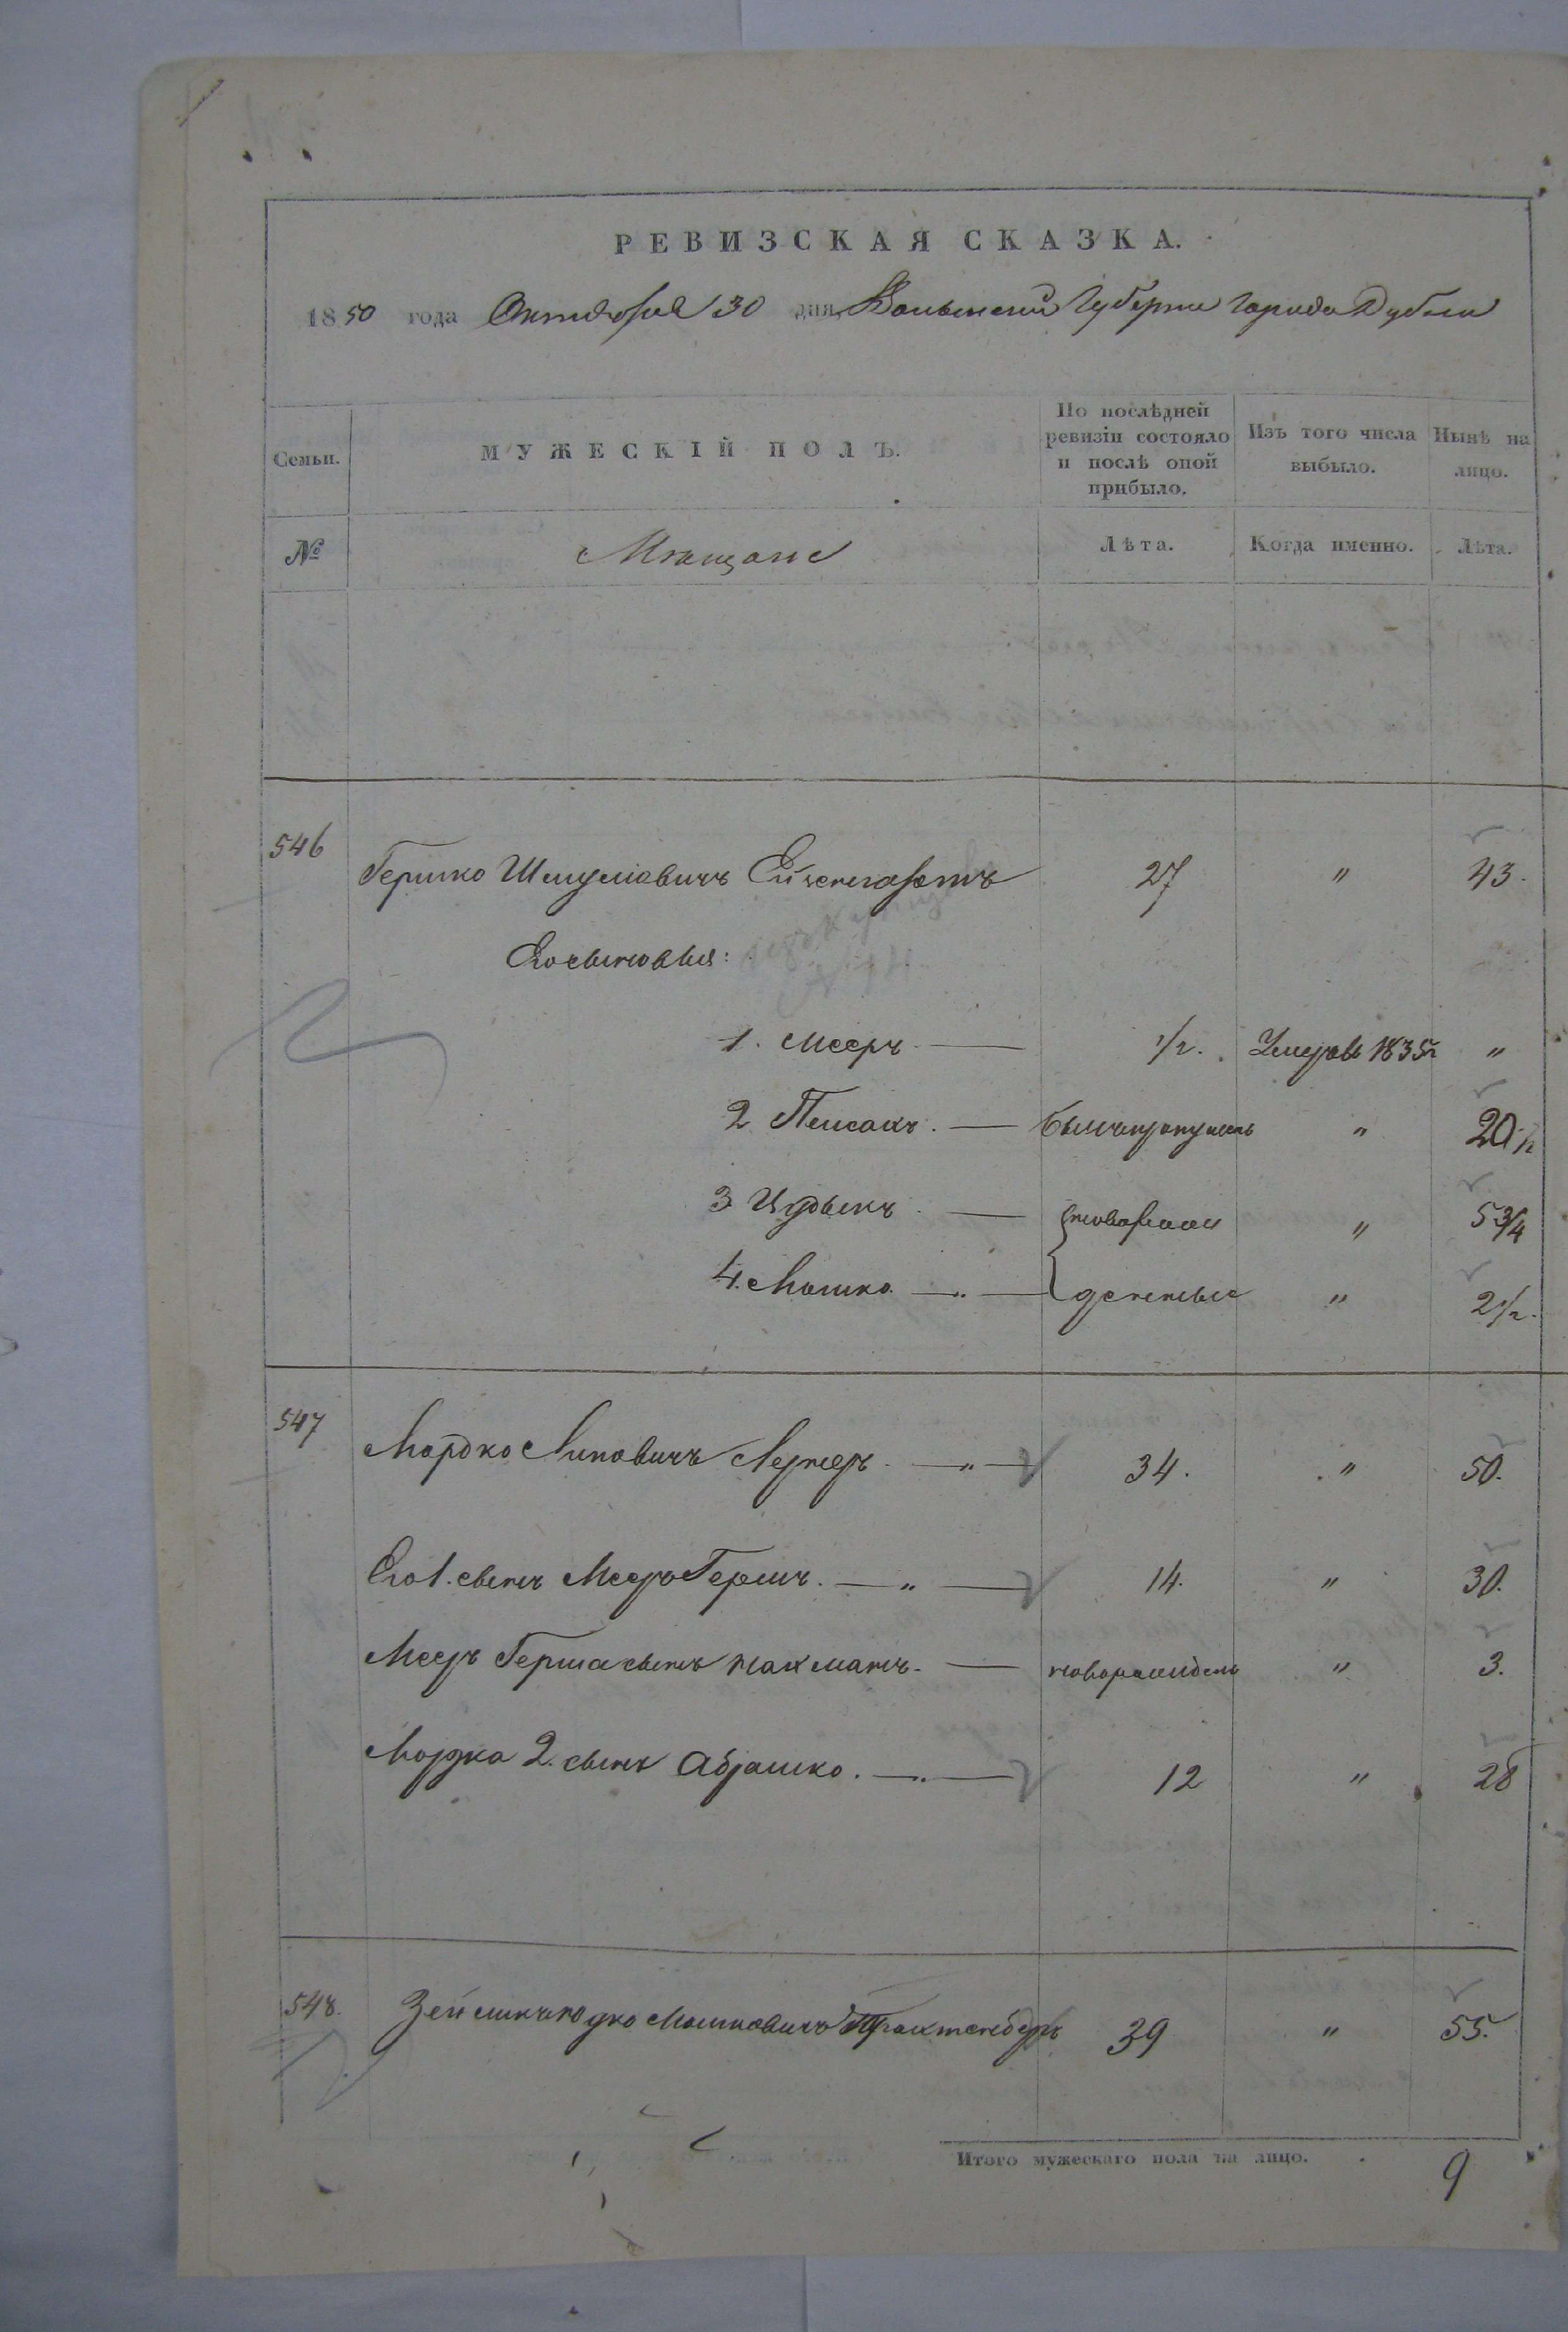 РЕВИЗСКАЯ СКАЗКА.
1850 года Октября 30 дня, Волынской Губернии Города Дубна
Семьи. МУЖЕСКІЙ ПОЛЪ. По послѣдней ревизіи состояло и послѣ оной прибыло. Изъ того числа выбыло. Нынѣ на лицо.
№ Мѣщане Лѣта. Когда именно. Лѣта.
546 Гершко Шмулiовичъ 27 " 43.
Его сыновья:
1. Мееръ — 1/2. Умеръ въ 1835 г "
2 Пейсакъ. — былъ пропущенъ " 20 1/2
3 Идынь — новорож " 5 3/4
4. Мошко — " — денные " 2 1/2.
547 Мордко Липовичъ Лернеръ — " — 34. " 50.
Его 1. сынъ Мееръ Гершъ. — " — 14. " 30.
Мееръ Герша сынъ Нахманъ. — новорожденъ " 3.
Мордка 2. сынъ Абрашко. — " — 12 " 28
548. Зейликъ Юдко Мошковичъ Трахтенберъ 39 " 55.
Итого мужескаго пола на лицо. 9